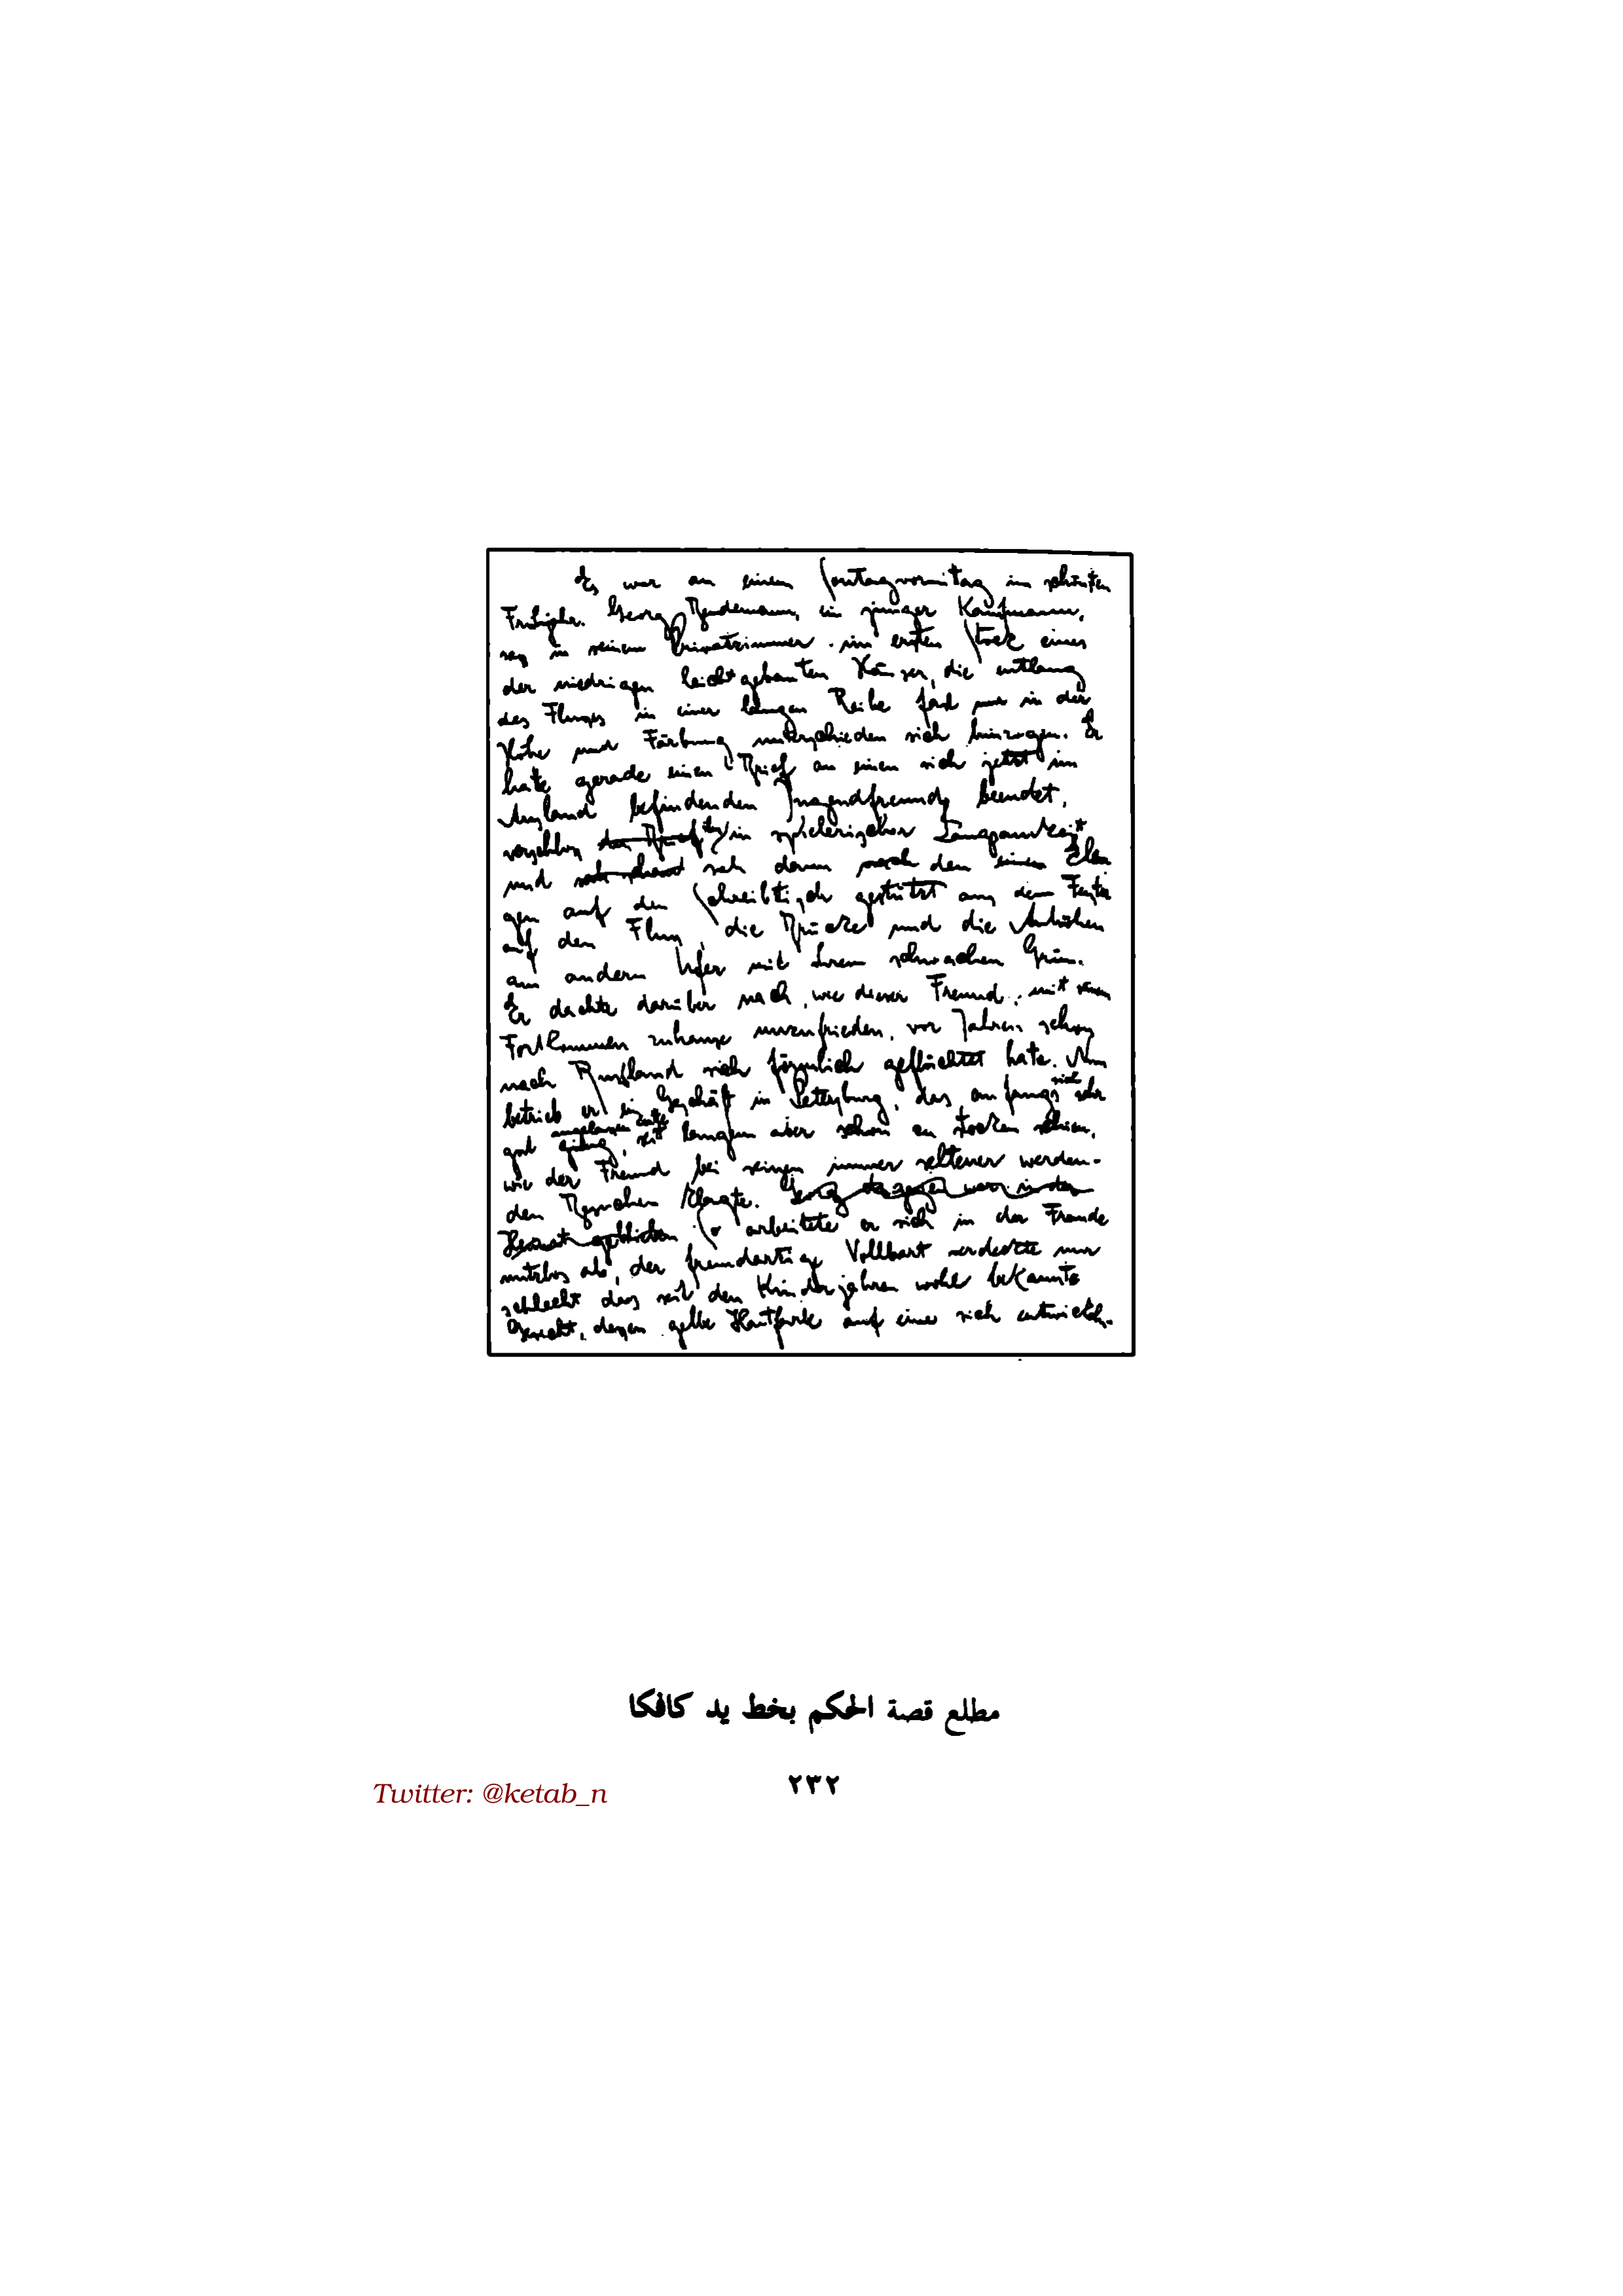 Es war an einem Sontagvormitag im schönsten
Frühjahr. Georg Bendemann, ein junger Kaufmann,
sass in seinem Privatzimmer im ersten Stock eines
der niedrigen leichtgebauten Häuser, die entlang
des Flusses in einer langen Reihe fast nur in der
Höhe und Färbung unterschieden sich hinzogen. Er
hatte gerade einen Brief an einen sich jetzt im
Ausland befindenden Jugendfreund beendet,
verschloss den Brief ihn in spielerischer Langsamkeit
und sah dann nach den einen Ellbo
gen auf den Schreibtisch gestützt aus dem Fenster
auf den Fluss, die Brücke und die Anhöhen
am andern Ufer mit ihrem schwachen Grün.
Er dachte darüber nach, wie dieser Freund, mit seinem
Fortkommen zuhause unzufrieden, vor Jahren schon
nach Russland sich förmlich geflüchtet hatte. Nun
betrieb er ein Geschäft in Petersburg, das anfangs sich sehr
gut angelassen hatte gieng, seit langem aber schon zu stocken schien,
wie der Freund bei seinen immer seltener werden-
den Besuchen klagte. Georg dagegen war in der
Heimat geblieben So arbeitete er sich in der Fremde
nutzlos ab, der fremdartige Vollbart verdeckte nur
schlecht das seit den Kinderjahren wohl bekannte
Gesicht, dessen gelbe Hautfarbe auf eine sich entwickeln-
مطلع قصة الحكم بخط يد كافكا
٢٣٢
Twitter: @ketab_n